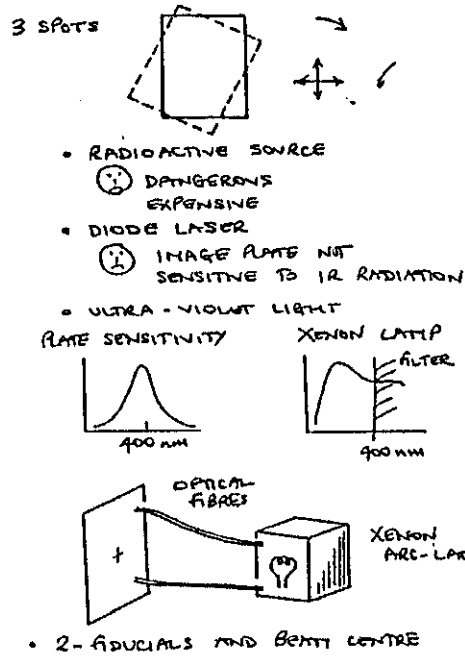 3 SPOTS
• RADIOACTIVE SOURCE
DANGEROUS
EXPENSIVE
• DIODE LASER
IMAGE PLATE NOT
SENSITIVE TO IR RADIATION
• ULTRA-VIOLET LIGHT
PLATE SENSITIVITY
XENON LAMP
FILTER
400 nm
400 nm
OPTICAL
FIBRES
XENON
ARC-LA
+
• 2-FIDUCIALS AND BEAM CENTRE